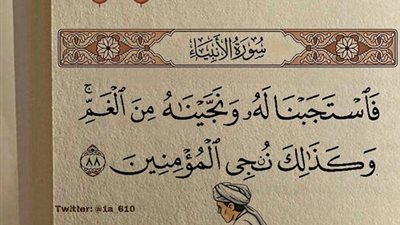 سُورَةُ الأَنبِيَاءِ
فَٱسْتَجَبْنَا لَهُۥ وَنَجَّيْنَٰهُ مِنَ ٱلْغَمِّ ۚ
وَكَذَٰلِكَ نُـۨجِى ٱلْمُؤْمِنِينَ ٨٨
Twitter: @1a_610